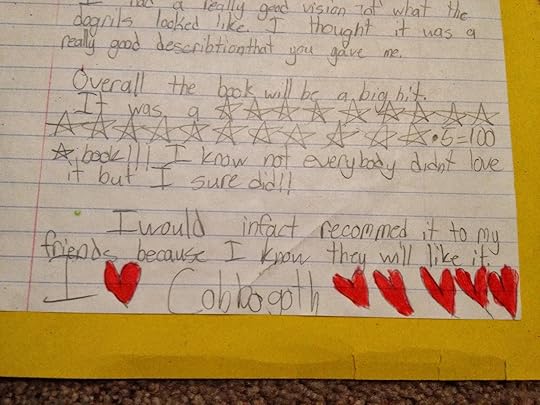 I had a really good vision of what the
dogrils looked like. I thought it was a
really good describtion that you gave me.
Overall the book will be a big hit.
It was a ☆☆☆☆☆☆☆☆☆
☆☆☆☆☆☆☆☆☆☆☆•5=100
☆ book!!! I know not everybody didnt love
it but I sure did!!
I would infact recommed it to my
friends because I know they will like it.
I ♥ Cobbogoth ♥♥♥♥♥